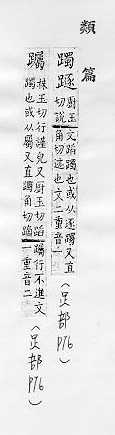 類篇
躅 廚玉切說文蹢躅也或从逐躅又直角切迹也文二重音一(足部P76)
株玉切行謹皃又廚玉切蹢躅也或从屬又直角切蹢躅行不進文一重音二(足部P76)